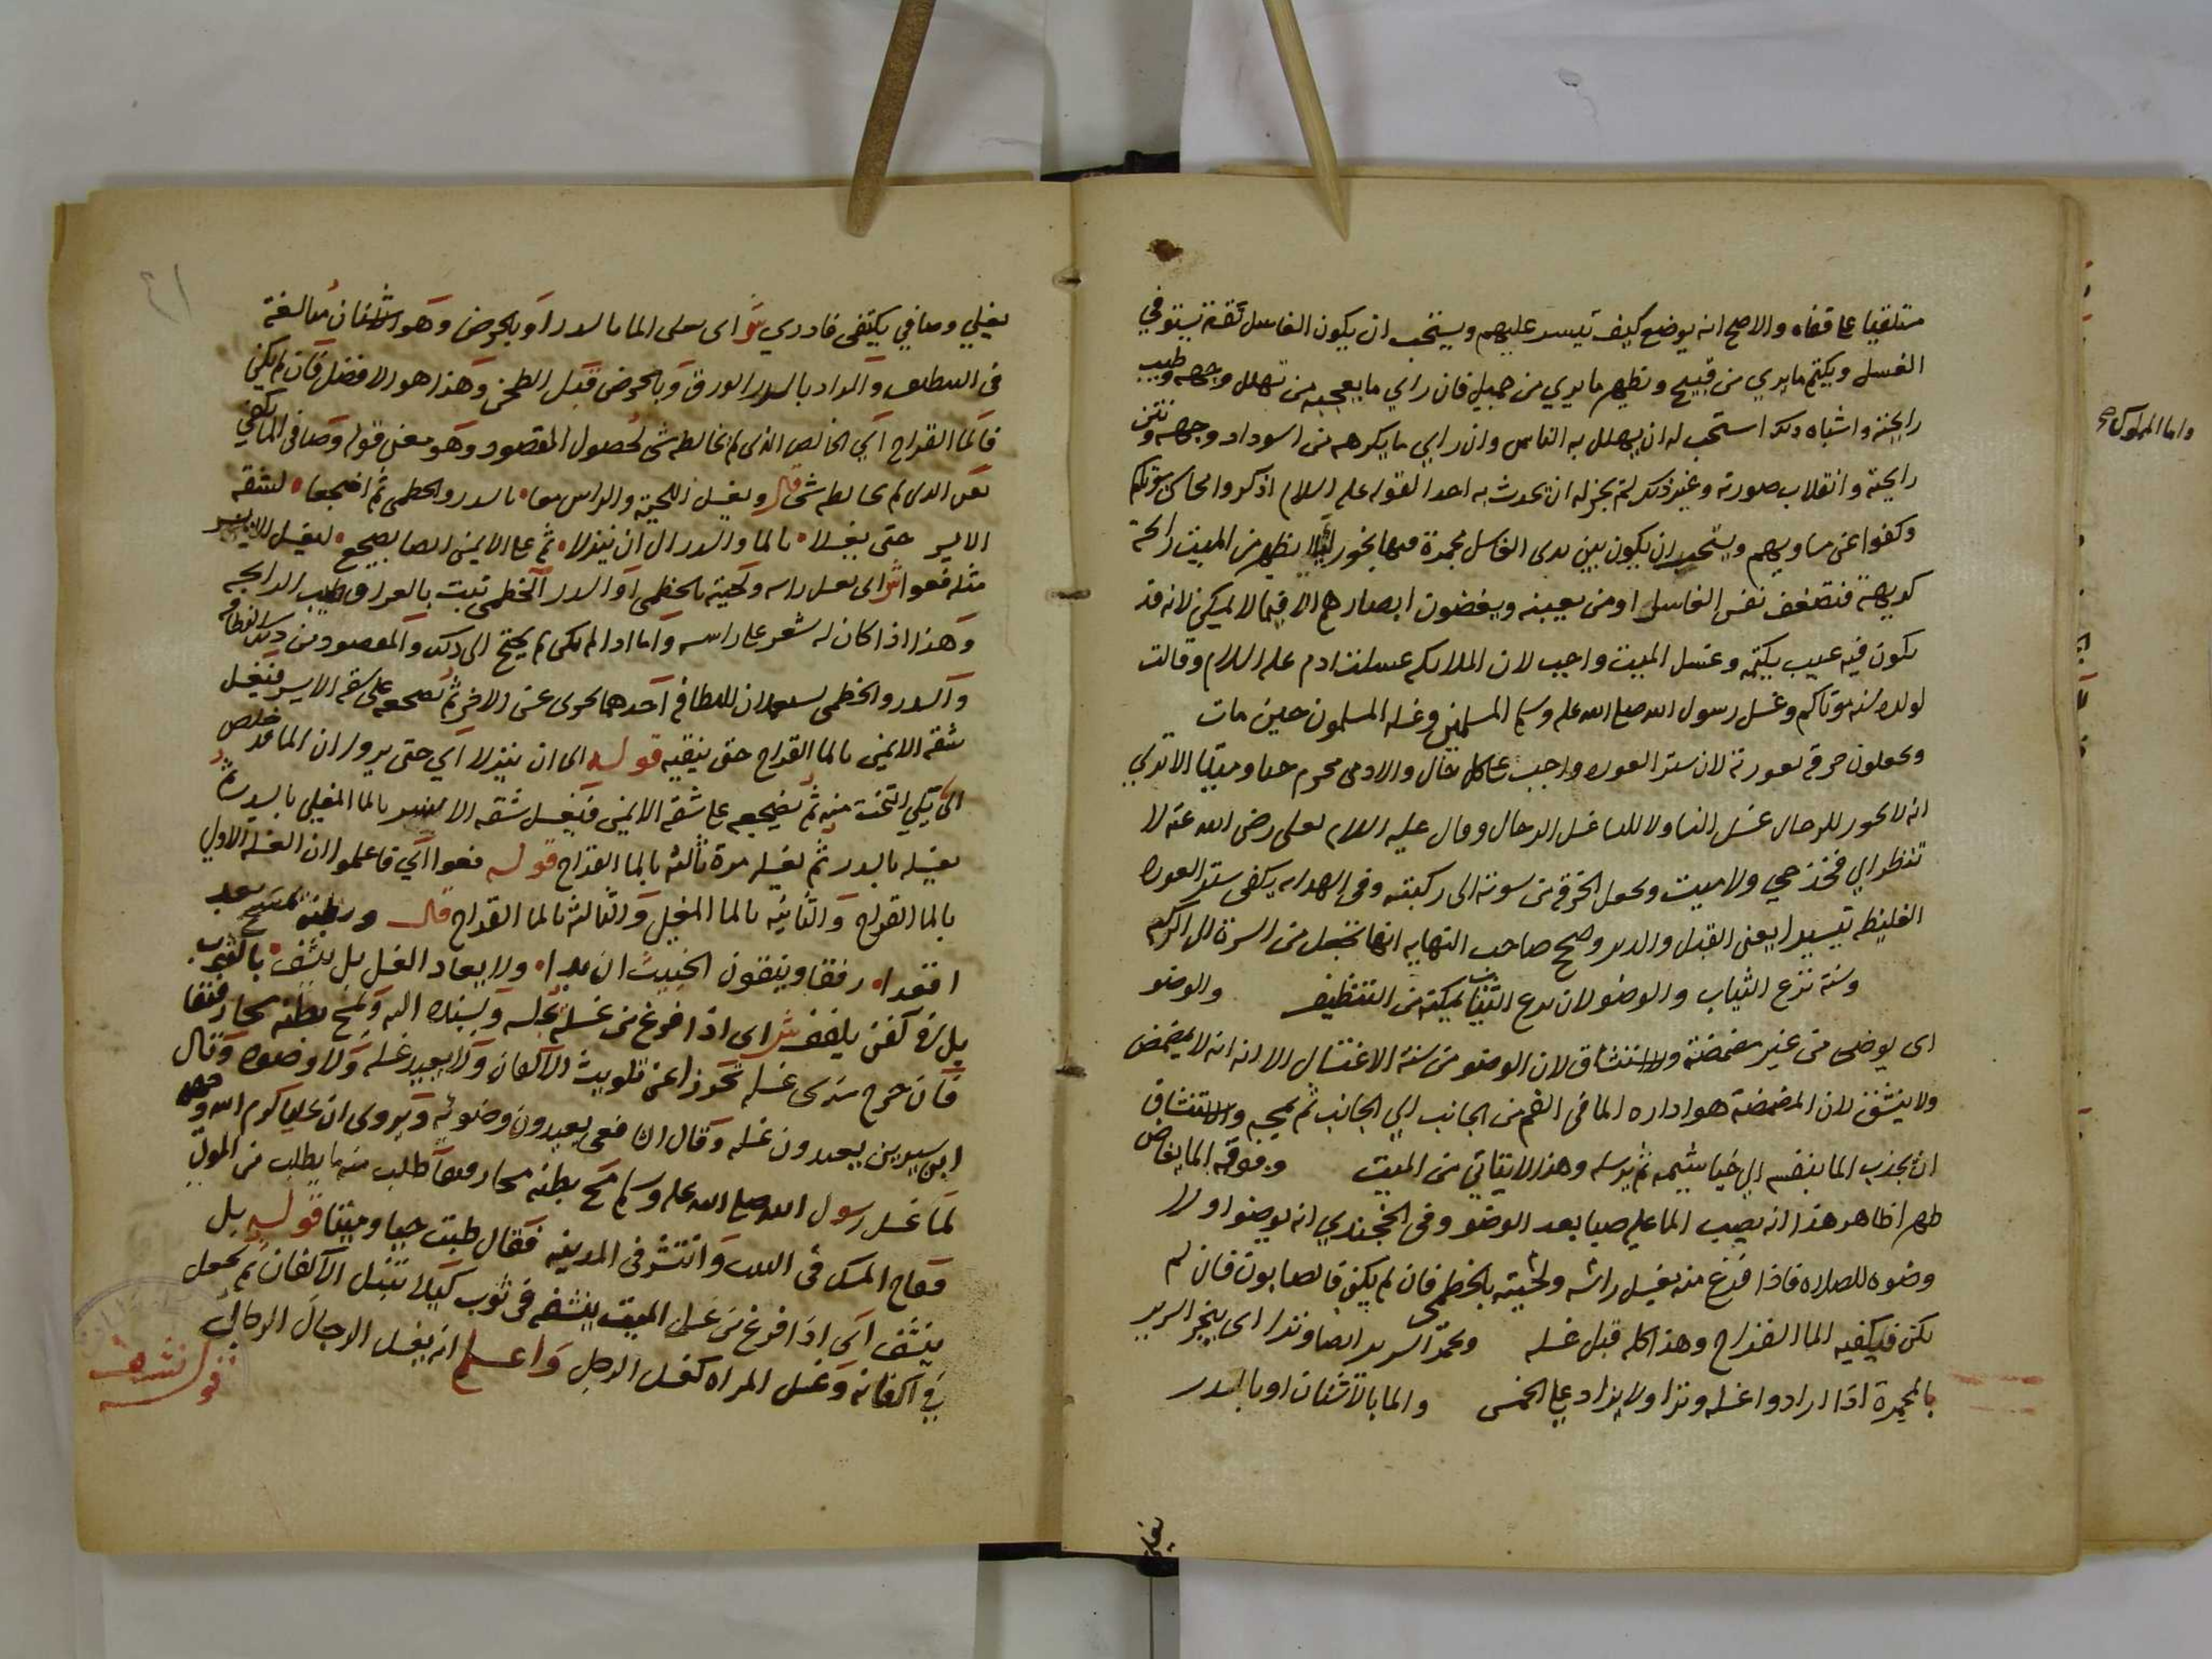 مستلقيا على قفاه والاصح انه يوضع كيف تيسر عليهم ويستحب ان يكون الغاسل ثقة يستوفي
الغسل ويكتم ما يرى من قبيح ويظهر ما يري من جميل فان راي ما يعجبه من تهلل وجهه وطيب
رايحته واشباه ذلك استحب له ان يهلل به الناس وان راي ما يكرهه من اسوداد وجهه ونتن
رايحته وانقلاب صورته وغير ذلك لم يجز له ان يحدث به احدا لقوله عليه السلام اذكروا محاسن موتاكم
وكفوا عن مساويهم ويستحب ان يكون بين يدى الغاسل مجمرة فيها بخور ليلا يظهر من الميت رايحة
كريهة فتضعف نفس الغاسل او من يعينه ويغضون ابصارهم الا فيما لا يمكن لانه قد
يكون فيه عيب يكتمه وغسل الميت واجب لان الملايكه غسلت ادم عليه السلام وقالت
لولده سنه موتاكم وغسل رسول الله صلى الله عليه وسلم المسلمين وغسله المسلمون حين مات
ويجعلون خرقه لعورته لان ستر العوره واجب على كل حال والادمى محترم حيا وميتا الا تري
انه لا يجوز للرجال غسل النسا ولا للنسا غسل الرجال وقال عليه السلام لعلى رضى الله عنه لا
تنظر الي فخذ حي ولا ميت وتجعل الخرقه من سرته الى ركبته وفى الهدايه يكفى ستر العوره
الغليظه تيسيرا يعنى القبل والدبر وصحح صاحب النهايه انها تجعل من السرة الى الركبه
وسنة نزع الثياب والوضو لان نزع الثياب يمكنه من التنظيف والوضو
اى يوضى من غير مضمضة ولا استنشاق لان الوضو من سنة الاغتسال الا انه لا يمضمض
ولا يستنشق لان المضمضة هو اداره الما فى الفم من الجانب الي الجانب ثم يمجه والاستنشاق
ان يجذب الما بنفسه الي خياشيمه ثم يرسله وهذا لا يتاتى من الميت وفوقه الما يفاض
طهرا ظاهر هذا انه يصب الما عليه صبا بعد الوضو وفى الخجندي انه يوضوا اولا
وضوه للصلاه فاذا فرغ منه يغسل راسه ولحيته بالخطمى فان لم يكن فالصابون فان لم
يكن فيكفيه الما القراح وهذا كله قبل غسله ويجمر السرير ايضا وترا اى يبخر السرير
بالمجمرة اذا ارادوا غسله وترا ولا يزاد على الخمس والما بالاشنان او بالسدر
يغلي
واما المملوك
يغلي وصافي يكتفى فادري ش اى يغلى الما بالسدر او بالحرض وهو الاشنان مبالغة
فى التنظيف والمراد بالسدر الورق وبالحرض قبل الطحن وهذا هو الافضل فان لم يكن
فالما القراح اي الخالص الذى لم يخالطه شى لحصول المقصود وهو معنى قوله وصافى الما يكفي
يعنى الذى لم يخالطه شى قال ويغسل اللحية والراس معا بالسدر والخطمى ثم اضجعا لشقه
الايسر حتى يغسلا بالما والسدر الى ان ينزلا ثم على الايمن ايضا يضجع ليغسل الايسر
مثله فعوا ش اى يغسل راسه ولحيته بالخطمى او السدر الخطمى نبت بالعراق طيب الرايحه
وهذا اذا كان له شعر على راسه واما اذا لم يكن لم يحتج الى ذلك والمقصود من ذلك النظافه
والسدر والخطمى يستعملان للنظافه احدهما يجزى عن الاخر ثم يضجعه على شقه الايسر فيغسل
شقه الايمن بالما القراح حتى ينقيه قوله الى ان ينزلا اي حتى يروا ان الما قد خلص
الى ما يلي التخت منه ثم يضجعه على شقه الايمن فيغسل شقه الايسر بالما المغلى بالسدر ثم
يغسله بالسدر ثم يغسله مرة ثالثة بالما القراح قوله فعوا اي فاعلموا ان الغسله الاولي
بالما القراح والثانيه بالما المغلى والثالثة بالما القراح قال وبطنه يمسح بعد
اقعدا رفقا وينقون الخبيث ان بدا ولا يعاد الغسل بل ينشف بالثوب
بل فى كفن يلفف ش اى اذا فرغ من غسله يجلسه ويسنده اليه ويمسح بطنه مسحا رفيقا
فان خرج شى غسله تحرزا عن تلويث الاكفان ولا يعيد غسله ولا وضوه وقال
ابن سيرين يعيدون غسله وقال الشافعى يعيدون وضوئه ويروى ان عليا كرم الله وجهه
لما غسل رسول الله صلى الله عليه وسلم مسح بطنه مسحا رفيقا طلب منه ما يطلب من الموتي
ففاح المسك فى البيت وانتشر فى المدينه فقال طبت حيا وميتا قوله بل
ينشف اى اذا فرغ من غسل الميت ينشفه فى ثوب كيلا تبتل الاكفان ثم يجعل
في اكفانه وغسل المراه كغسل الرجل واعلم انه يغسل الرجال الرجال